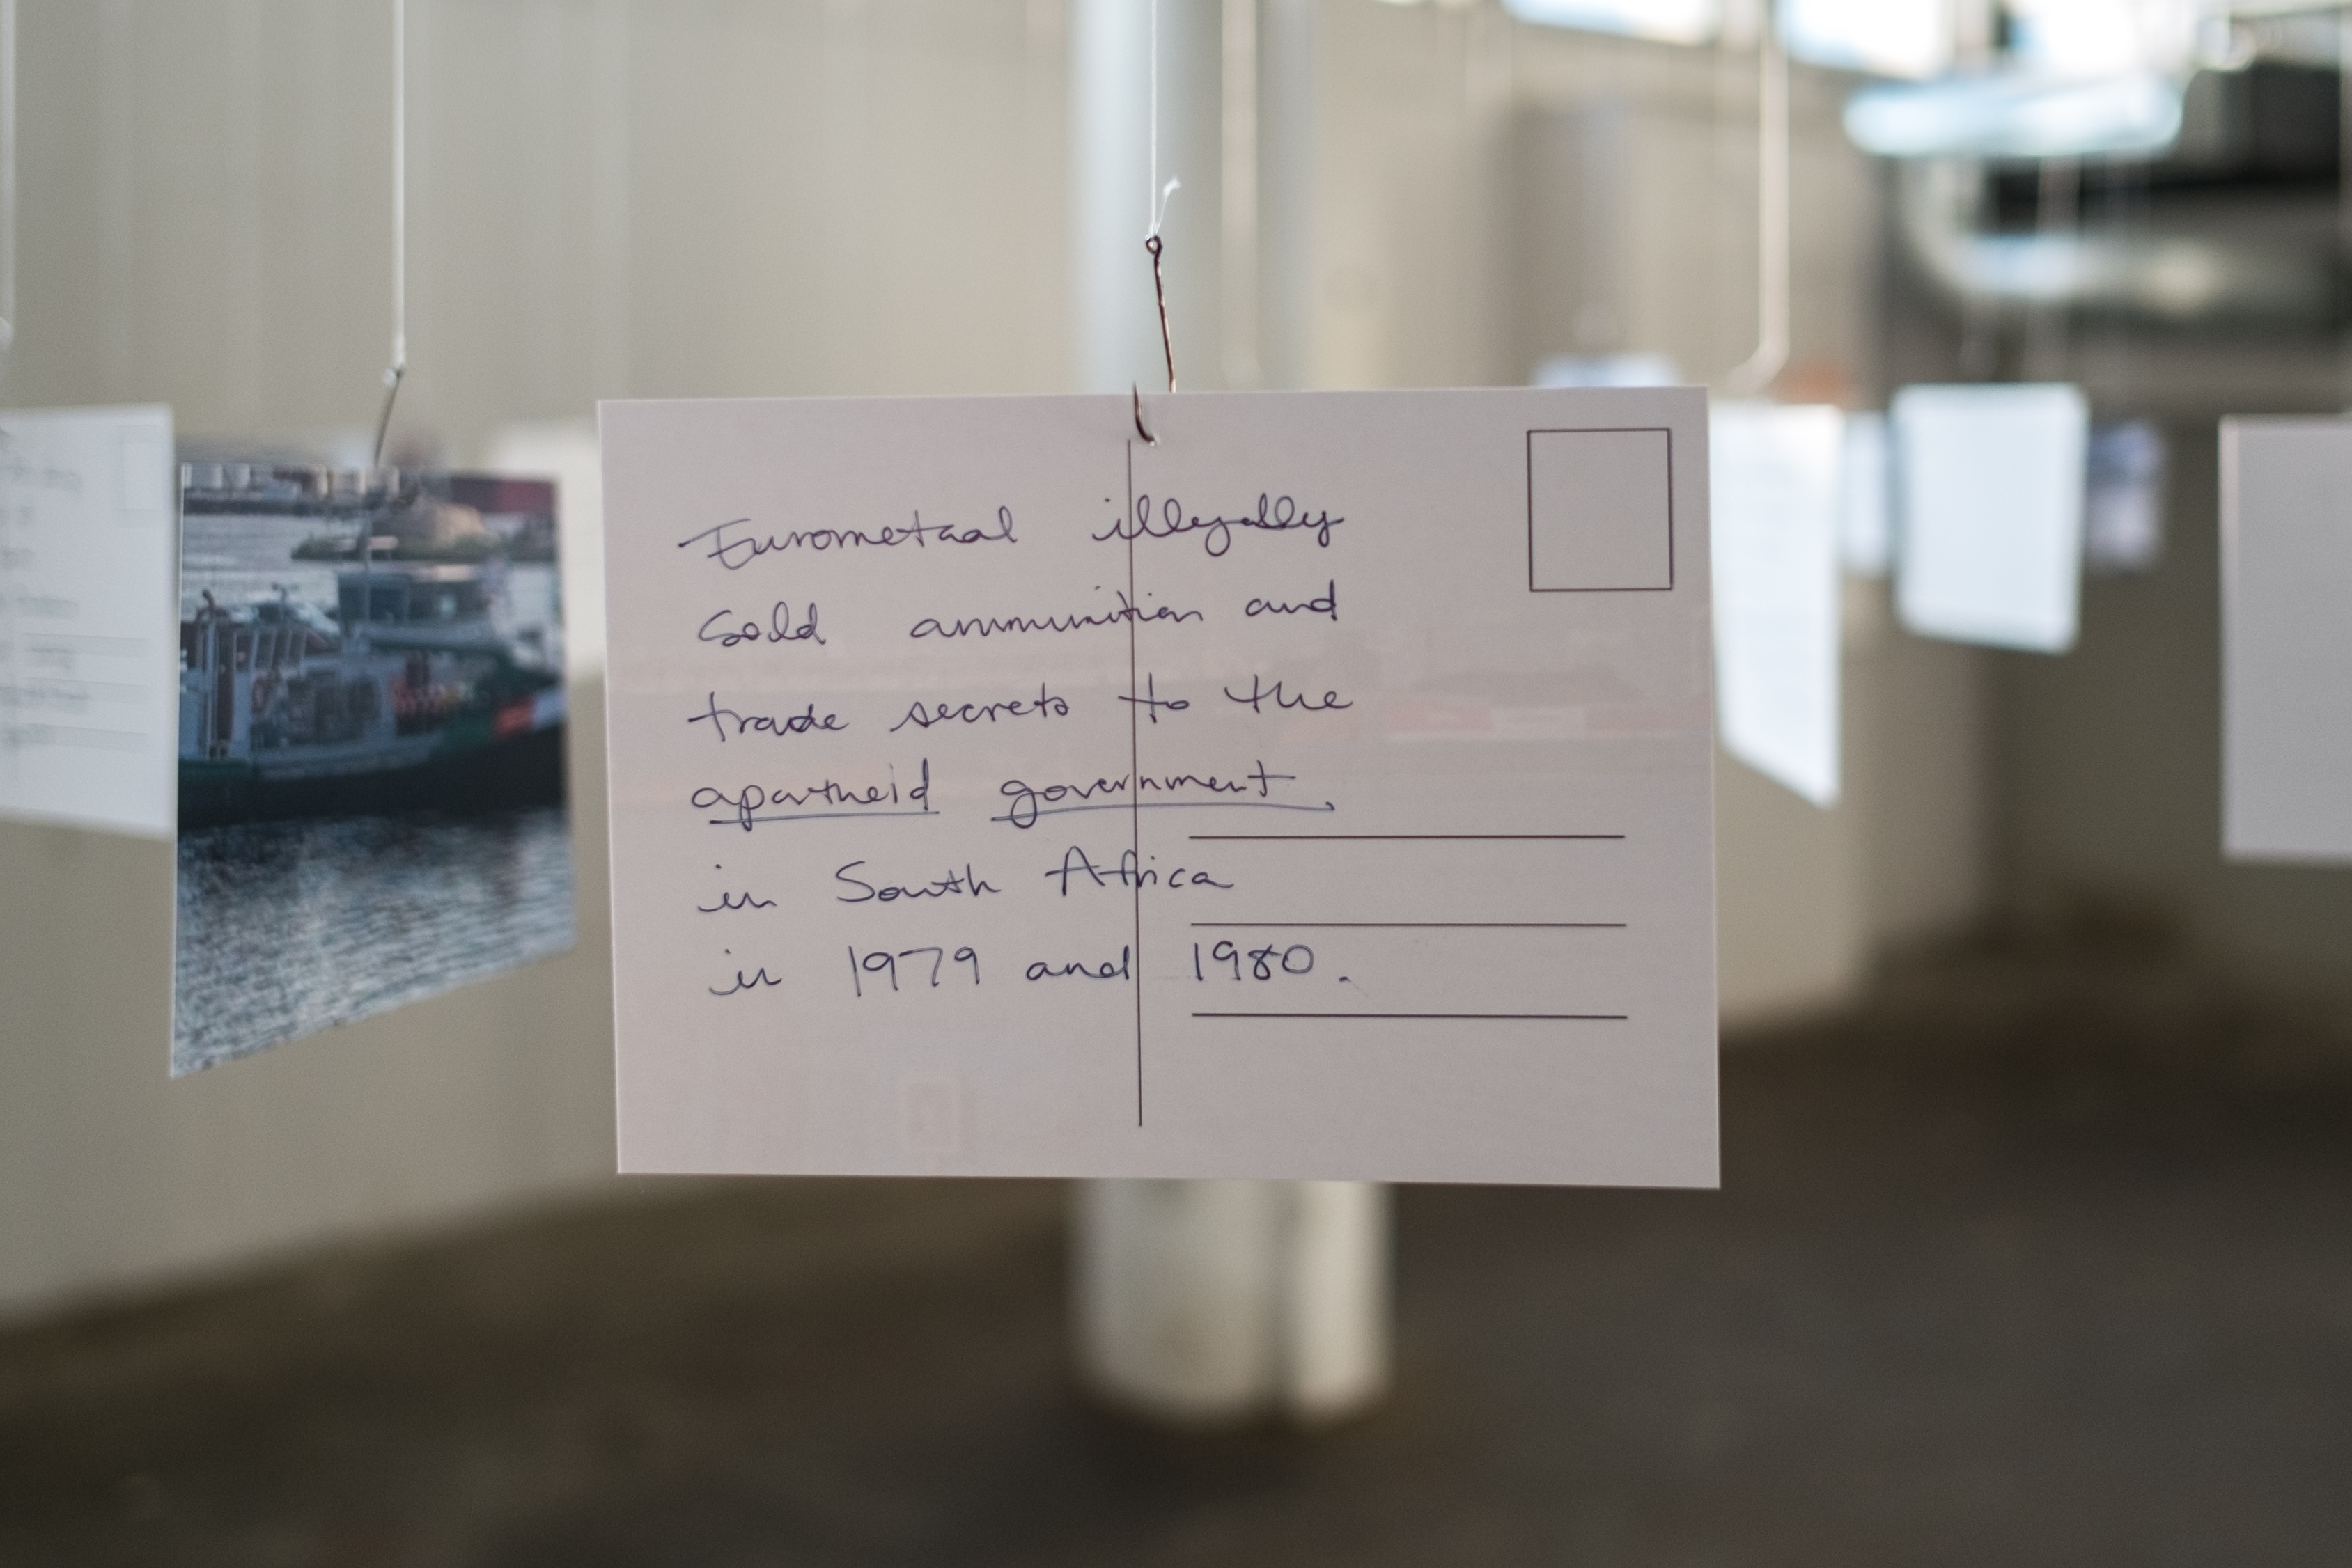 Eurometaal illegally
sold ammunition and
trade secrets to the
apartheid government
in South Africa
in 1979 and 1980.